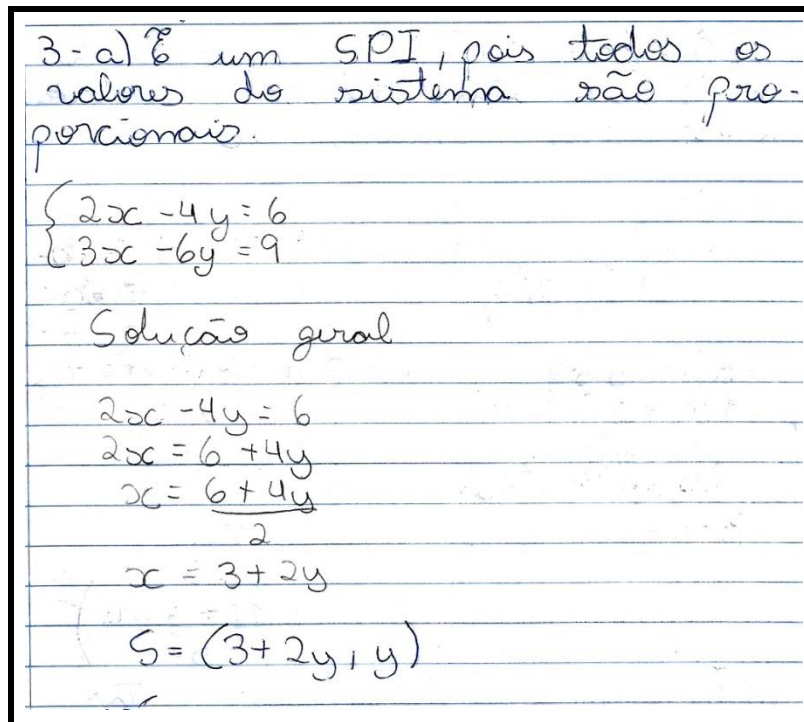 3-a) É um SPI, pois todos os
valores do sistema são pro-
porcionais.
{ 2x - 4y = 6
{ 3x - 6y = 9
Solução geral
2x - 4y = 6
2x = 6 + 4y
x = 6 + 4y
2
x = 3 + 2y
S = (3 + 2y, y)